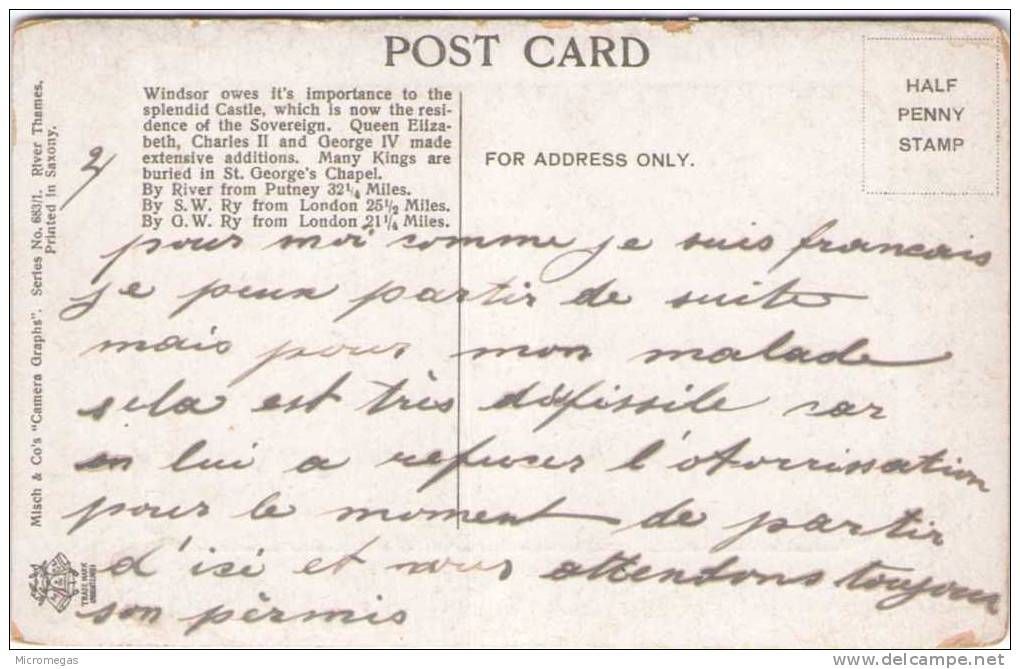 POST CARD
Windsor owes it's importance to the
splendid Castle, which is now the resi-
dence of the Sovereign. Queen Eliza-
beth, Charles II and George IV made
extensive additions. Many Kings are
buried in St. George's Chapel.
By River from Putney 32¼ Miles.
By S.W. Ry from London 25½ Miles.
By G.W. Ry from London 21¼ Miles.
FOR ADDRESS ONLY.
HALF
PENNY
STAMP
Misch & Co's "Camera Graphs". Series No. 683/1. River Thames.
Printed in Saxony.
TRADE MARK
2
pour moi comme je suis francais
je peux partir de suite
mais pour mon malade
sela est très diffissile car
on lui a refuser l'otorrissation
pour le moment de partir
d'isi et nous attendons toujours
son pèrmis
Micromegas
delcampe.net